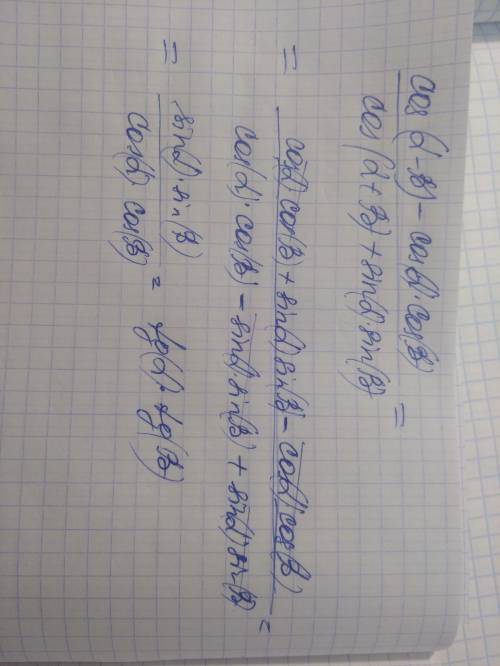 cos(α-β) - cos(α)·cos(β)
cos(α+β) + sin(α)·sin(β) =
= cos(α) cos(β) + sin(α) sin(β) - cos(α) cos(β)
cos(α)·cos(β) - sin(α)·sin(β) + sin(α)·sin(β) =
= sin(α)·sin(β)
cos(α) cos(β) = tg(α)·tg(β)